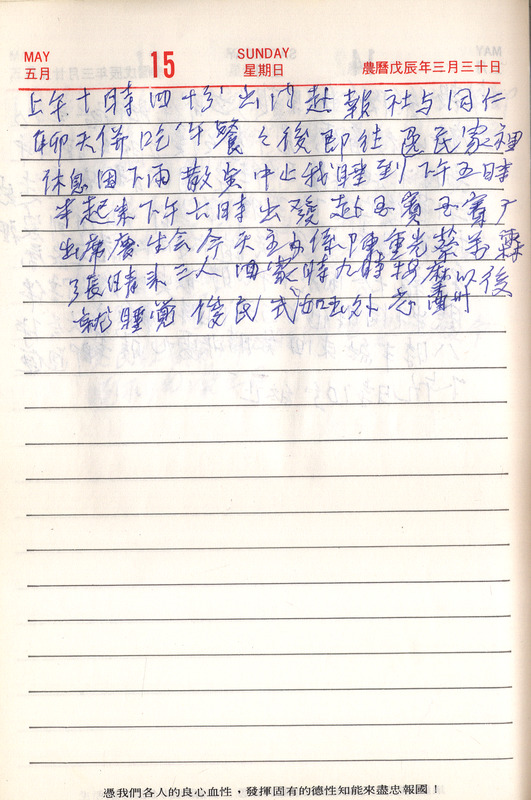 MAY 15 SUNDAY
五月 星期日 農曆戊辰年三月三十日
上午十時四十分出門赴報社与同仁
聊天併吃午餐之後即往 民家裡
休息因下雨散 中止我睡到下午五時
半起來下午六時出發赴 賓
出席慶生会今天主办係陳重光蔡
張晴 三人回家時九時按摩以後
就睡覺
憑我們各人的良心血性，發揮固有的德性知能來盡忠報國！